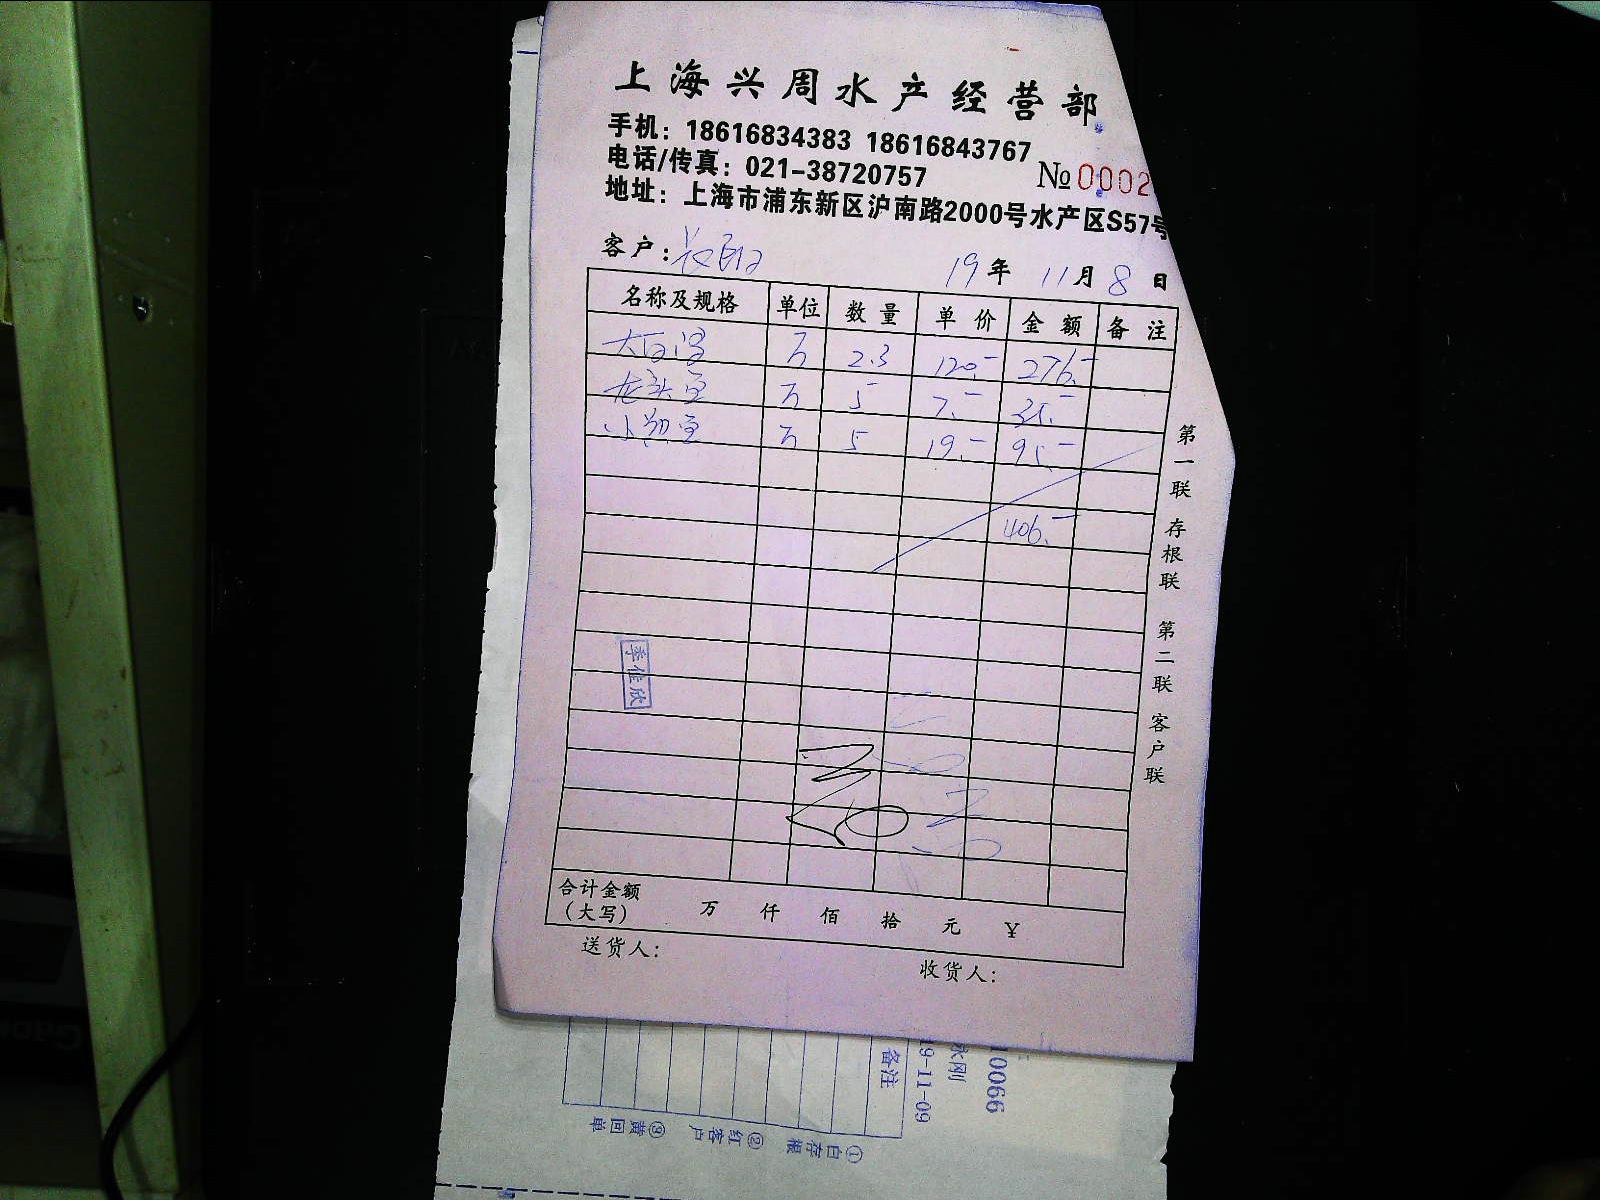 上海兴周水产经营部
手机：18616834383 18616843767
电话/传真：021-38720757
№0002
地址：上海市浦东新区沪南路2000号水产区S57号
客户：
19年 11月 8日
名称及规格 单位 数量 单价 金额 备注
大白 斤 2.3 120.- 276.-
龙头鱼 斤 5 7.- 35.-
小 鱼 斤 5 19.- 95.-
406.-
第一联 存根联 第二联 客户联
季佳欣
合计金额（大写） 万 仟 佰 拾 元 ¥
送货人：
收货人：
10066
冰刚
19-11-09
备注
①白存根 ②红客户 ③黄回单